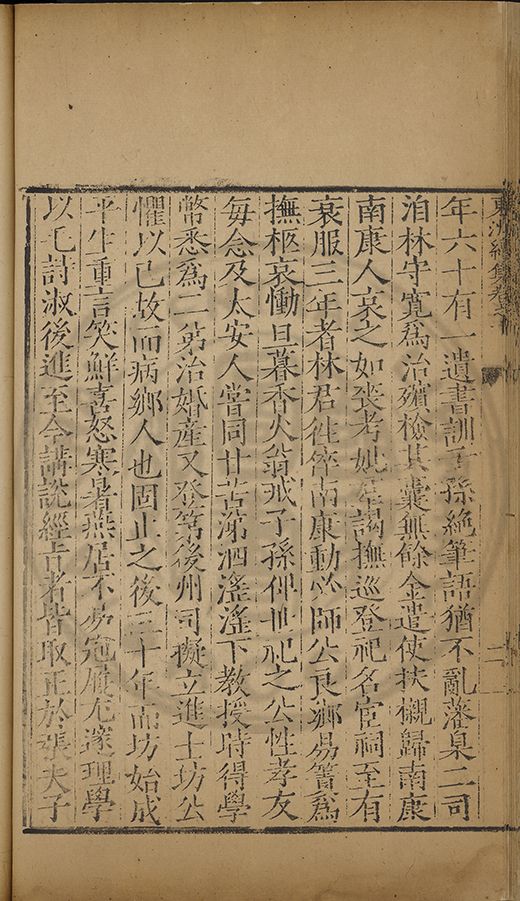 年六十有一遺書訓子孫絶筆語猶不亂藩臬二司
洎林守寛爲治殯檢其囊無餘金遣使扶櫬歸南康
南康人哀之如丧考妣羣謁撫巡登祀名宦祠至有
衰服三年者林君徃倅南康動必師公良鄉易簀爲
撫柩哀慟旦暮香火翁戒子孫俾世祀之公性孝友
每念及太安人嘗同甘苦涕泗滛滛下教授時得學
幣悉爲二弟治婚産又登第後州司擬立進士坊公
懼以已故而病鄉人也固止之後三十年而坊始成
平生重言笑鮮喜怒寒暑燕居不易冠屨尤邃理學
以毛詩淑後進至今講説經占者皆取正於張夫子
東洲續集卷之
二